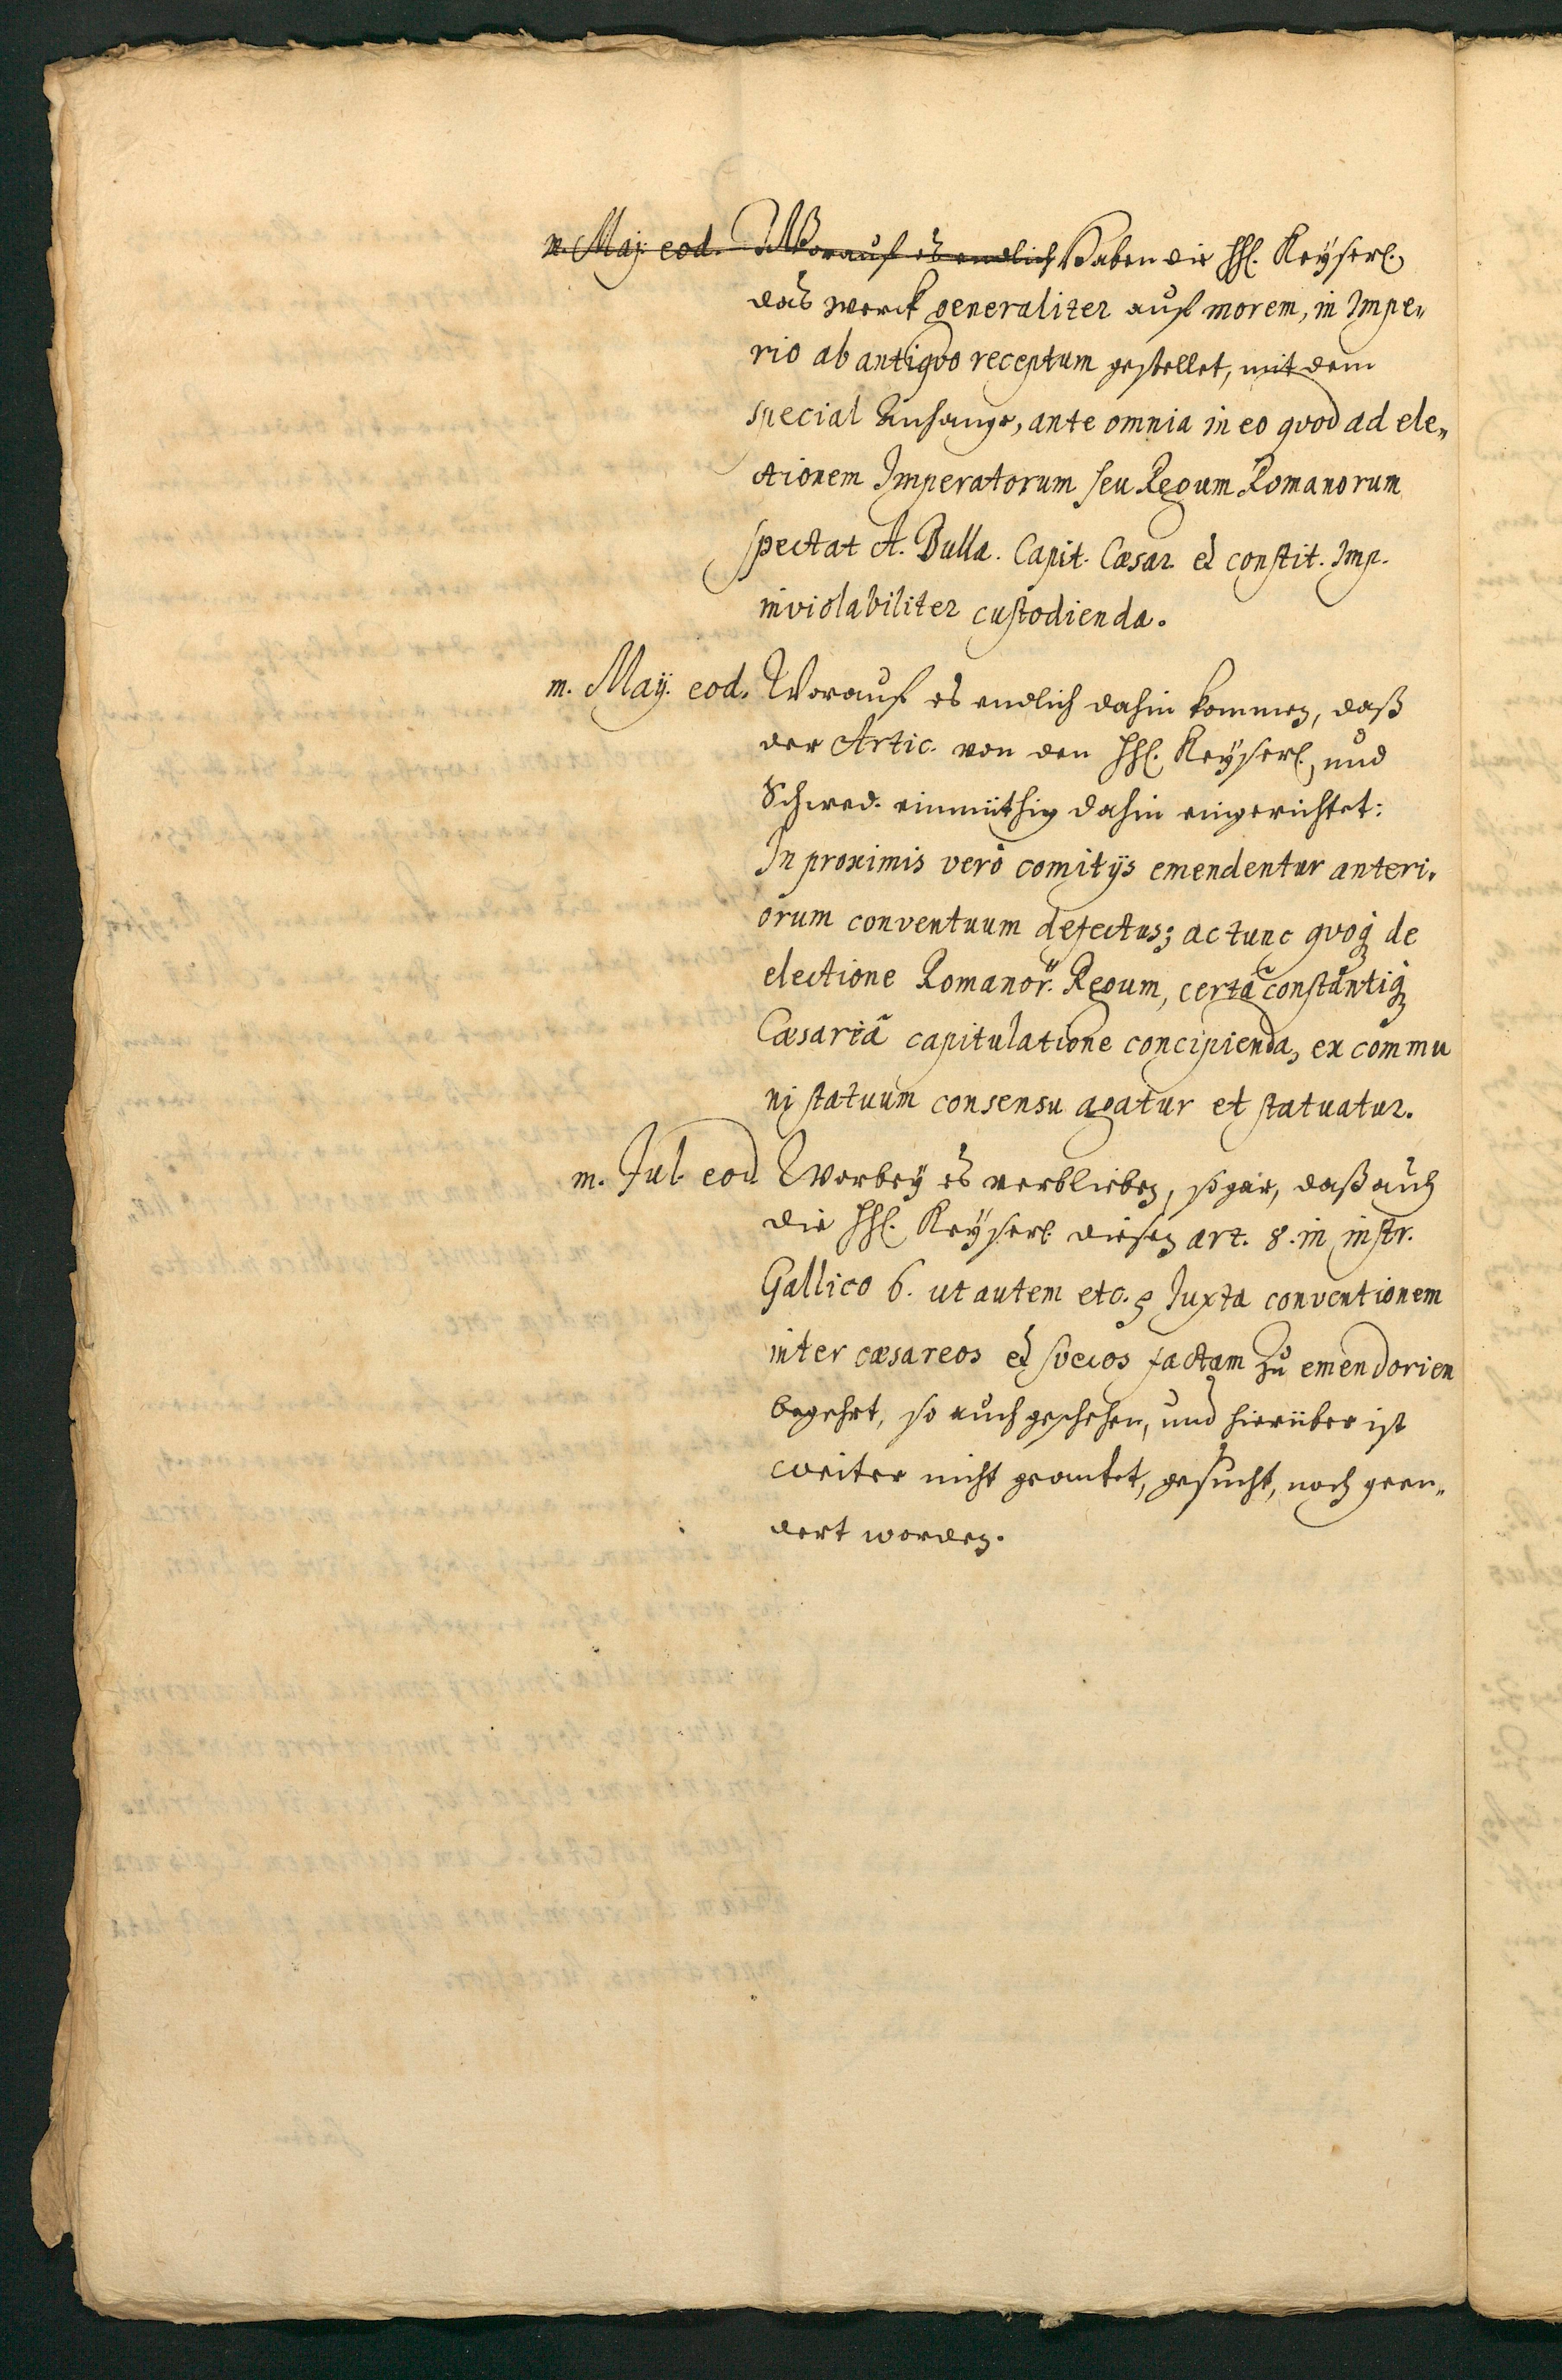 m. Maj. eod. Worauf es endlich Haben die Hhl. Keÿserl.
das werck generaliter auf morem, in Impe„
rio ab antiqvo receptum gestellet, mit dem
special Anhange, ante omnia in eo qvod ad ele„
ctionem Imperatorum seu Regum Romanorum
spectat A. Bulla. Capit. Cæsar. et constit. Imp.
inviolabiliter custodienda.
m. Maÿ. eod. Worauf es endlich dahin kommen, daß
der Artic. von den Hhl. Keÿserl. und
Schwed. einmüthig dahin eingerichtet:
In proximis verò comitijs emendentur anteri„
orum conventuum defectus; ac tunc qvoq de
electione Romanor. Regum, certâ constantiq
Cæsareâ capitulatione concipienda, ex commu
ni statuum consensu agatur et statuatur.
m. Jul. eod. Worbeÿ es verblieben, so gar, daß auch
die Hhl. Keÿserl. diesen art. 8. in instr.
Gallico 6. ut autem etc. § Juxta conventionem
inter cæsareos et svecos factam zu emendorien
begehrt, so auch geschehen, und hierüber ist
weiter nicht geantet, gesucht, noch geen„
dert worden.